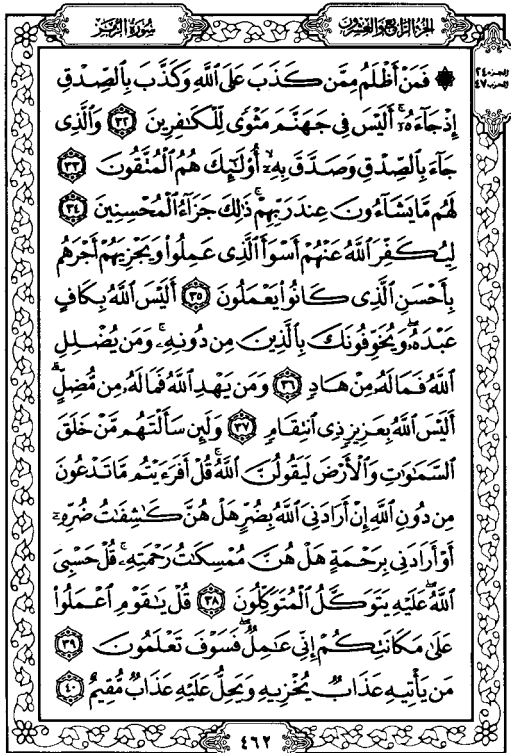 سُورَةُ الزُّمَرِ
الجزء الرابع والعشرون
الجزء ٢٤
الحزب ٤٧
۞ فَمَنْ أَظْلَمُ مِمَّن كَذَبَ عَلَى ٱللَّهِ وَكَذَّبَ بِٱلصِّدْقِ
إِذْ جَآءَهُۥٓ ۚ أَلَيْسَ فِى جَهَنَّمَ مَثْوًى لِّلْكَـٰفِرِينَ ٣٢ وَٱلَّذِى
جَآءَ بِٱلصِّدْقِ وَصَدَّقَ بِهِۦٓ ۙ أُو۟لَـٰٓئِكَ هُمُ ٱلْمُتَّقُونَ ٣٣
لَهُم مَّا يَشَآءُونَ عِندَ رَبِّهِمْ ۚ ذَٰلِكَ جَزَآءُ ٱلْمُحْسِنِينَ ٣٤
لِيُكَفِّرَ ٱللَّهُ عَنْهُمْ أَسْوَأَ ٱلَّذِى عَمِلُوا۟ وَيَجْزِيَهُمْ أَجْرَهُم
بِأَحْسَنِ ٱلَّذِى كَانُوا۟ يَعْمَلُونَ ٣٥ أَلَيْسَ ٱللَّهُ بِكَافٍ
عَبْدَهُۥ ۖ وَيُخَوِّفُونَكَ بِٱلَّذِينَ مِن دُونِهِۦ ۚ وَمَن يُضْلِلِ
ٱللَّهُ فَمَا لَهُۥ مِنْ هَادٍ ٣٦ وَمَن يَهْدِ ٱللَّهُ فَمَا لَهُۥ مِن مُّضِلٍّ ۗ
أَلَيْسَ ٱللَّهُ بِعَزِيزٍ ذِى ٱنتِقَامٍ ٣٧ وَلَئِن سَأَلْتَهُم مَّنْ خَلَقَ
ٱلسَّمَـٰوَٰتِ وَٱلْأَرْضَ لَيَقُولُنَّ ٱللَّهُ ۚ قُلْ أَفَرَءَيْتُم مَّا تَدْعُونَ
مِن دُونِ ٱللَّهِ إِنْ أَرَادَنِىَ ٱللَّهُ بِضُرٍّ هَلْ هُنَّ كَـٰشِفَـٰتُ ضُرِّهِۦٓ
أَوْ أَرَادَنِى بِرَحْمَةٍ هَلْ هُنَّ مُمْسِكَـٰتُ رَحْمَتِهِۦ ۚ قُلْ حَسْبِىَ
ٱللَّهُ ۖ عَلَيْهِ يَتَوَكَّلُ ٱلْمُتَوَكِّلُونَ ٣٨ قُلْ يَـٰقَوْمِ ٱعْمَلُوا۟
عَلَىٰ مَكَانَتِكُمْ إِنِّى عَـٰمِلٌ ۖ فَسَوْفَ تَعْلَمُونَ ٣٩
مَن يَأْتِيهِ عَذَابٌ يُخْزِيهِ وَيَحِلُّ عَلَيْهِ عَذَابٌ مُّقِيمٌ ٤٠
٤٦٢